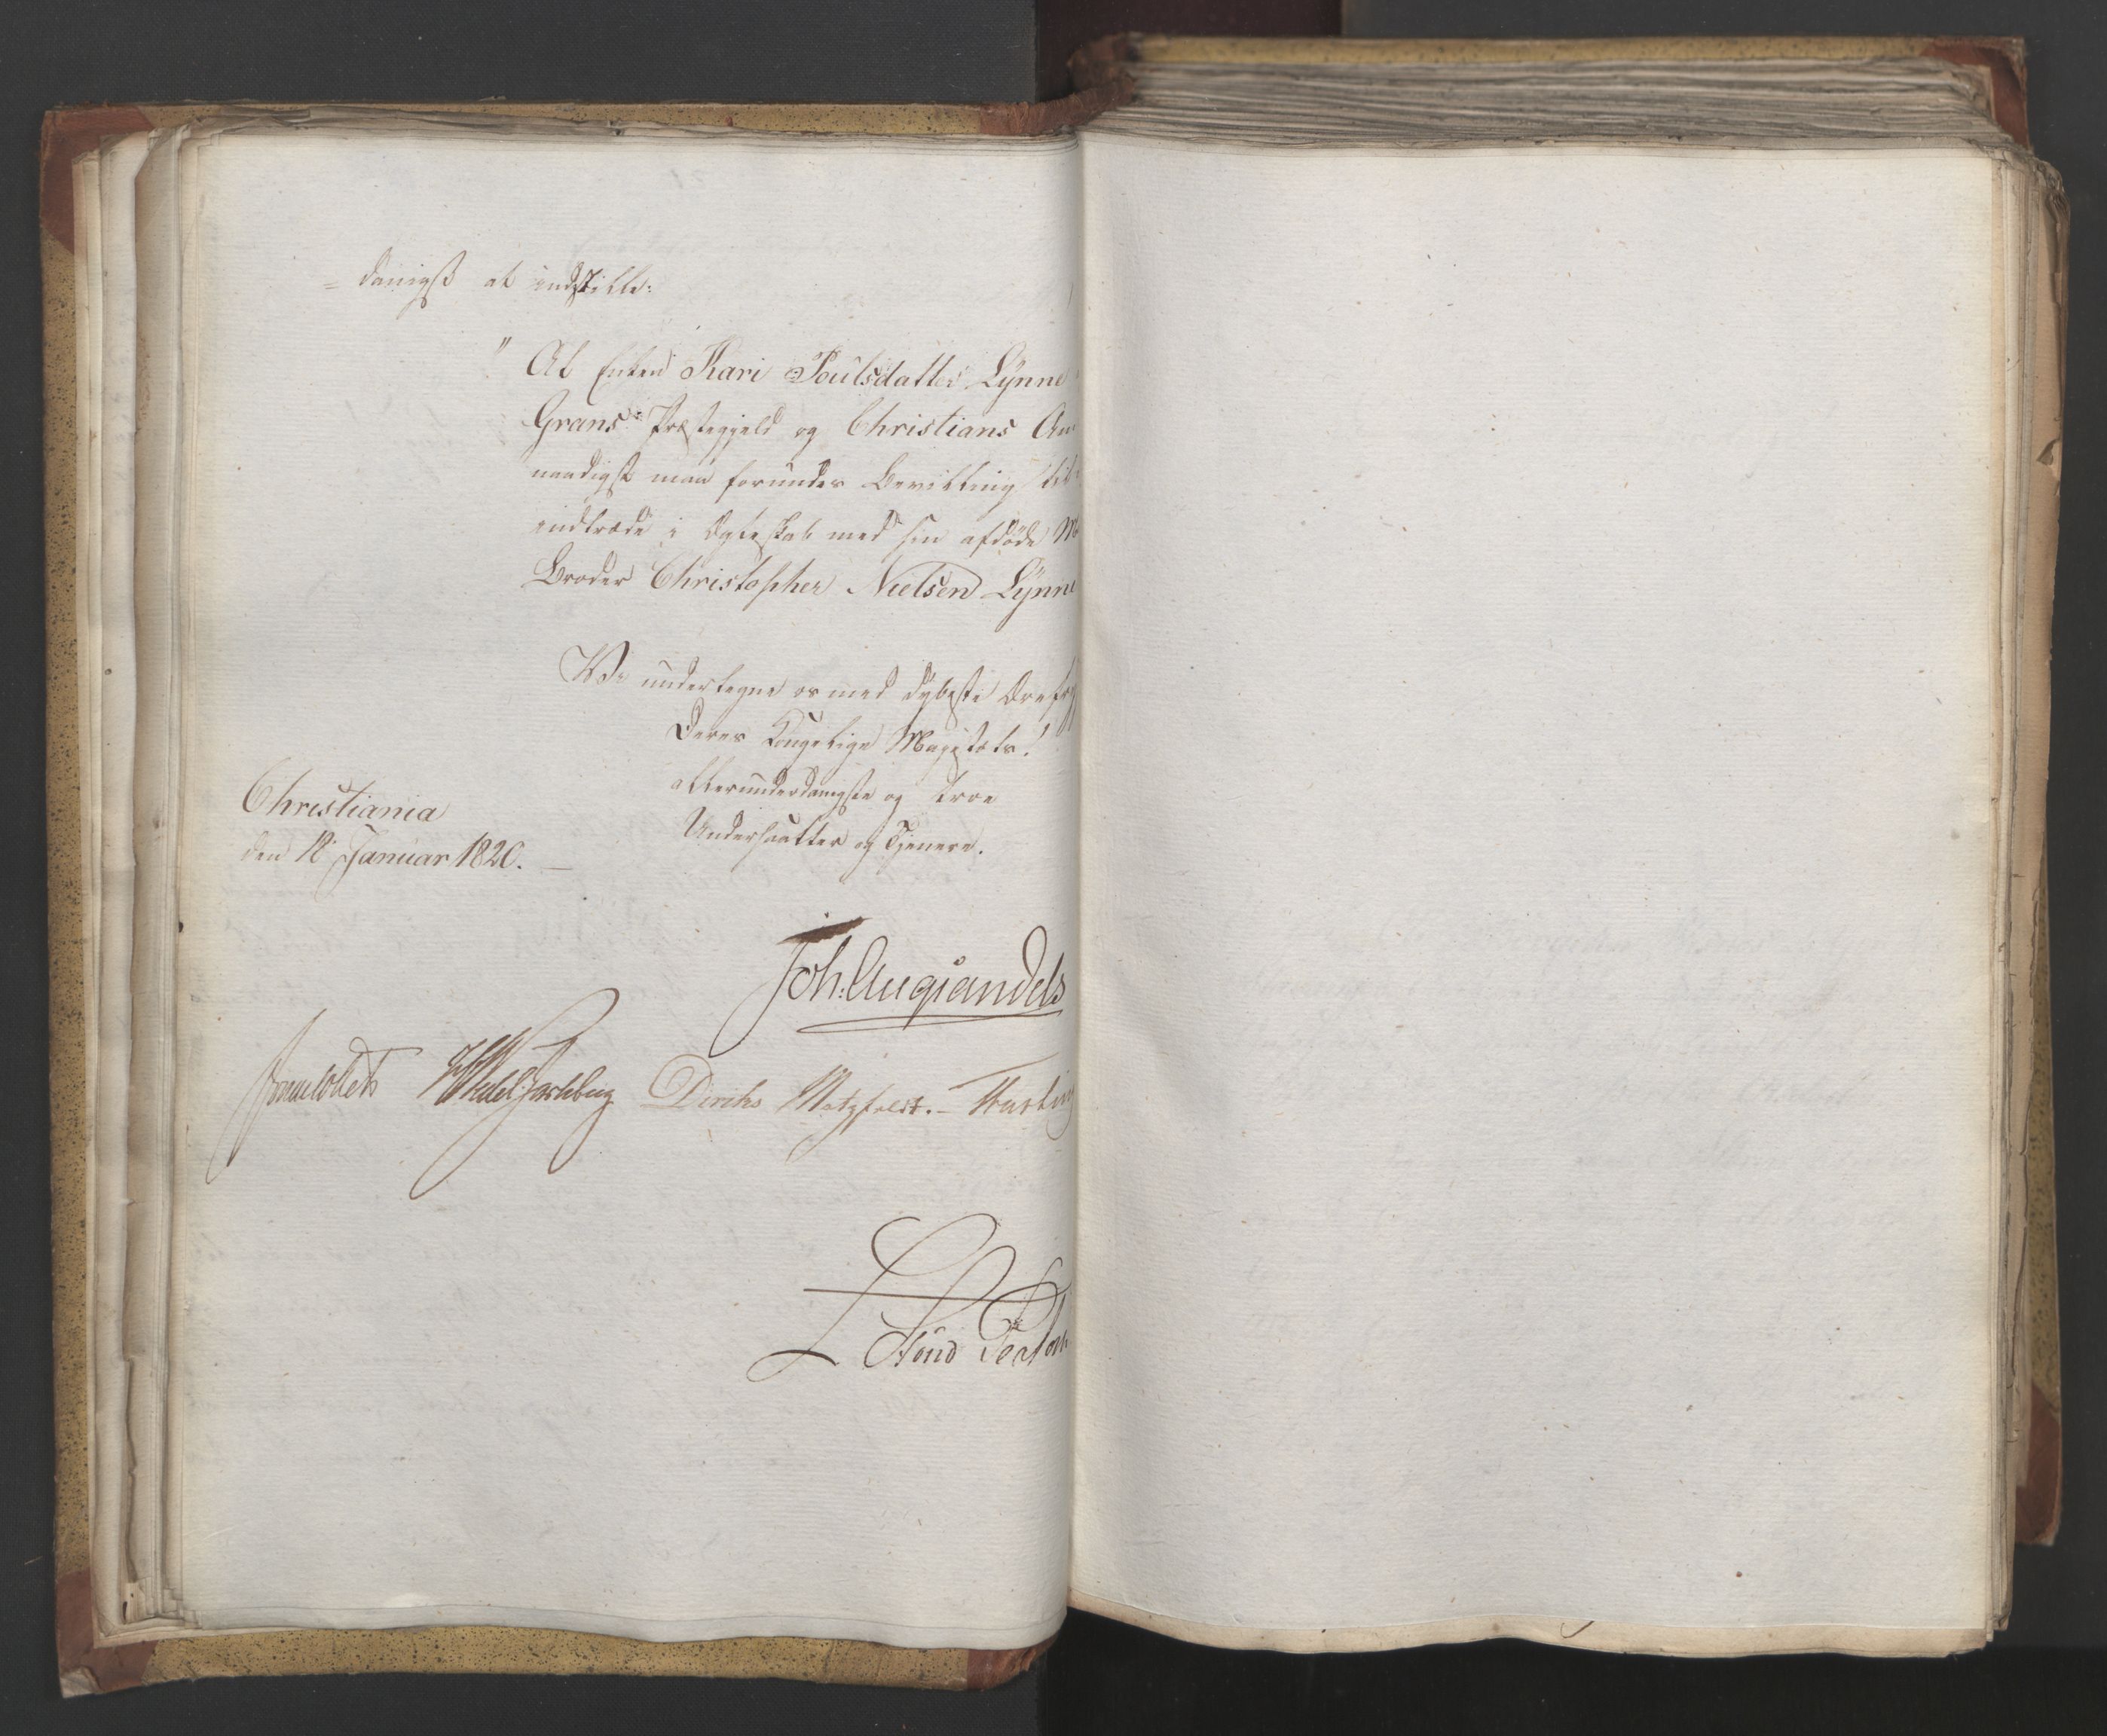 = danigst at indstille:
" At Enken Kari Poulsdatter Lynne
Grans Præstegjeld og Christians Am
naadigst maa forundes Bevilling til
indtræde i Ægteskab med sin afdøde M
Broder Christopher Nielsen Lynne
Vi undertegne os med dybeste Ærefr
Deres Kongelige Majestæts!
allerunderdanigste og troe
Undersaatter og Tjenere.
Christiania
den 12 Januar 1820.
Joh: Aug: Sandels
Jonas Collett HWedel Jarlsberg Diriks Motzfeldt. Fasting